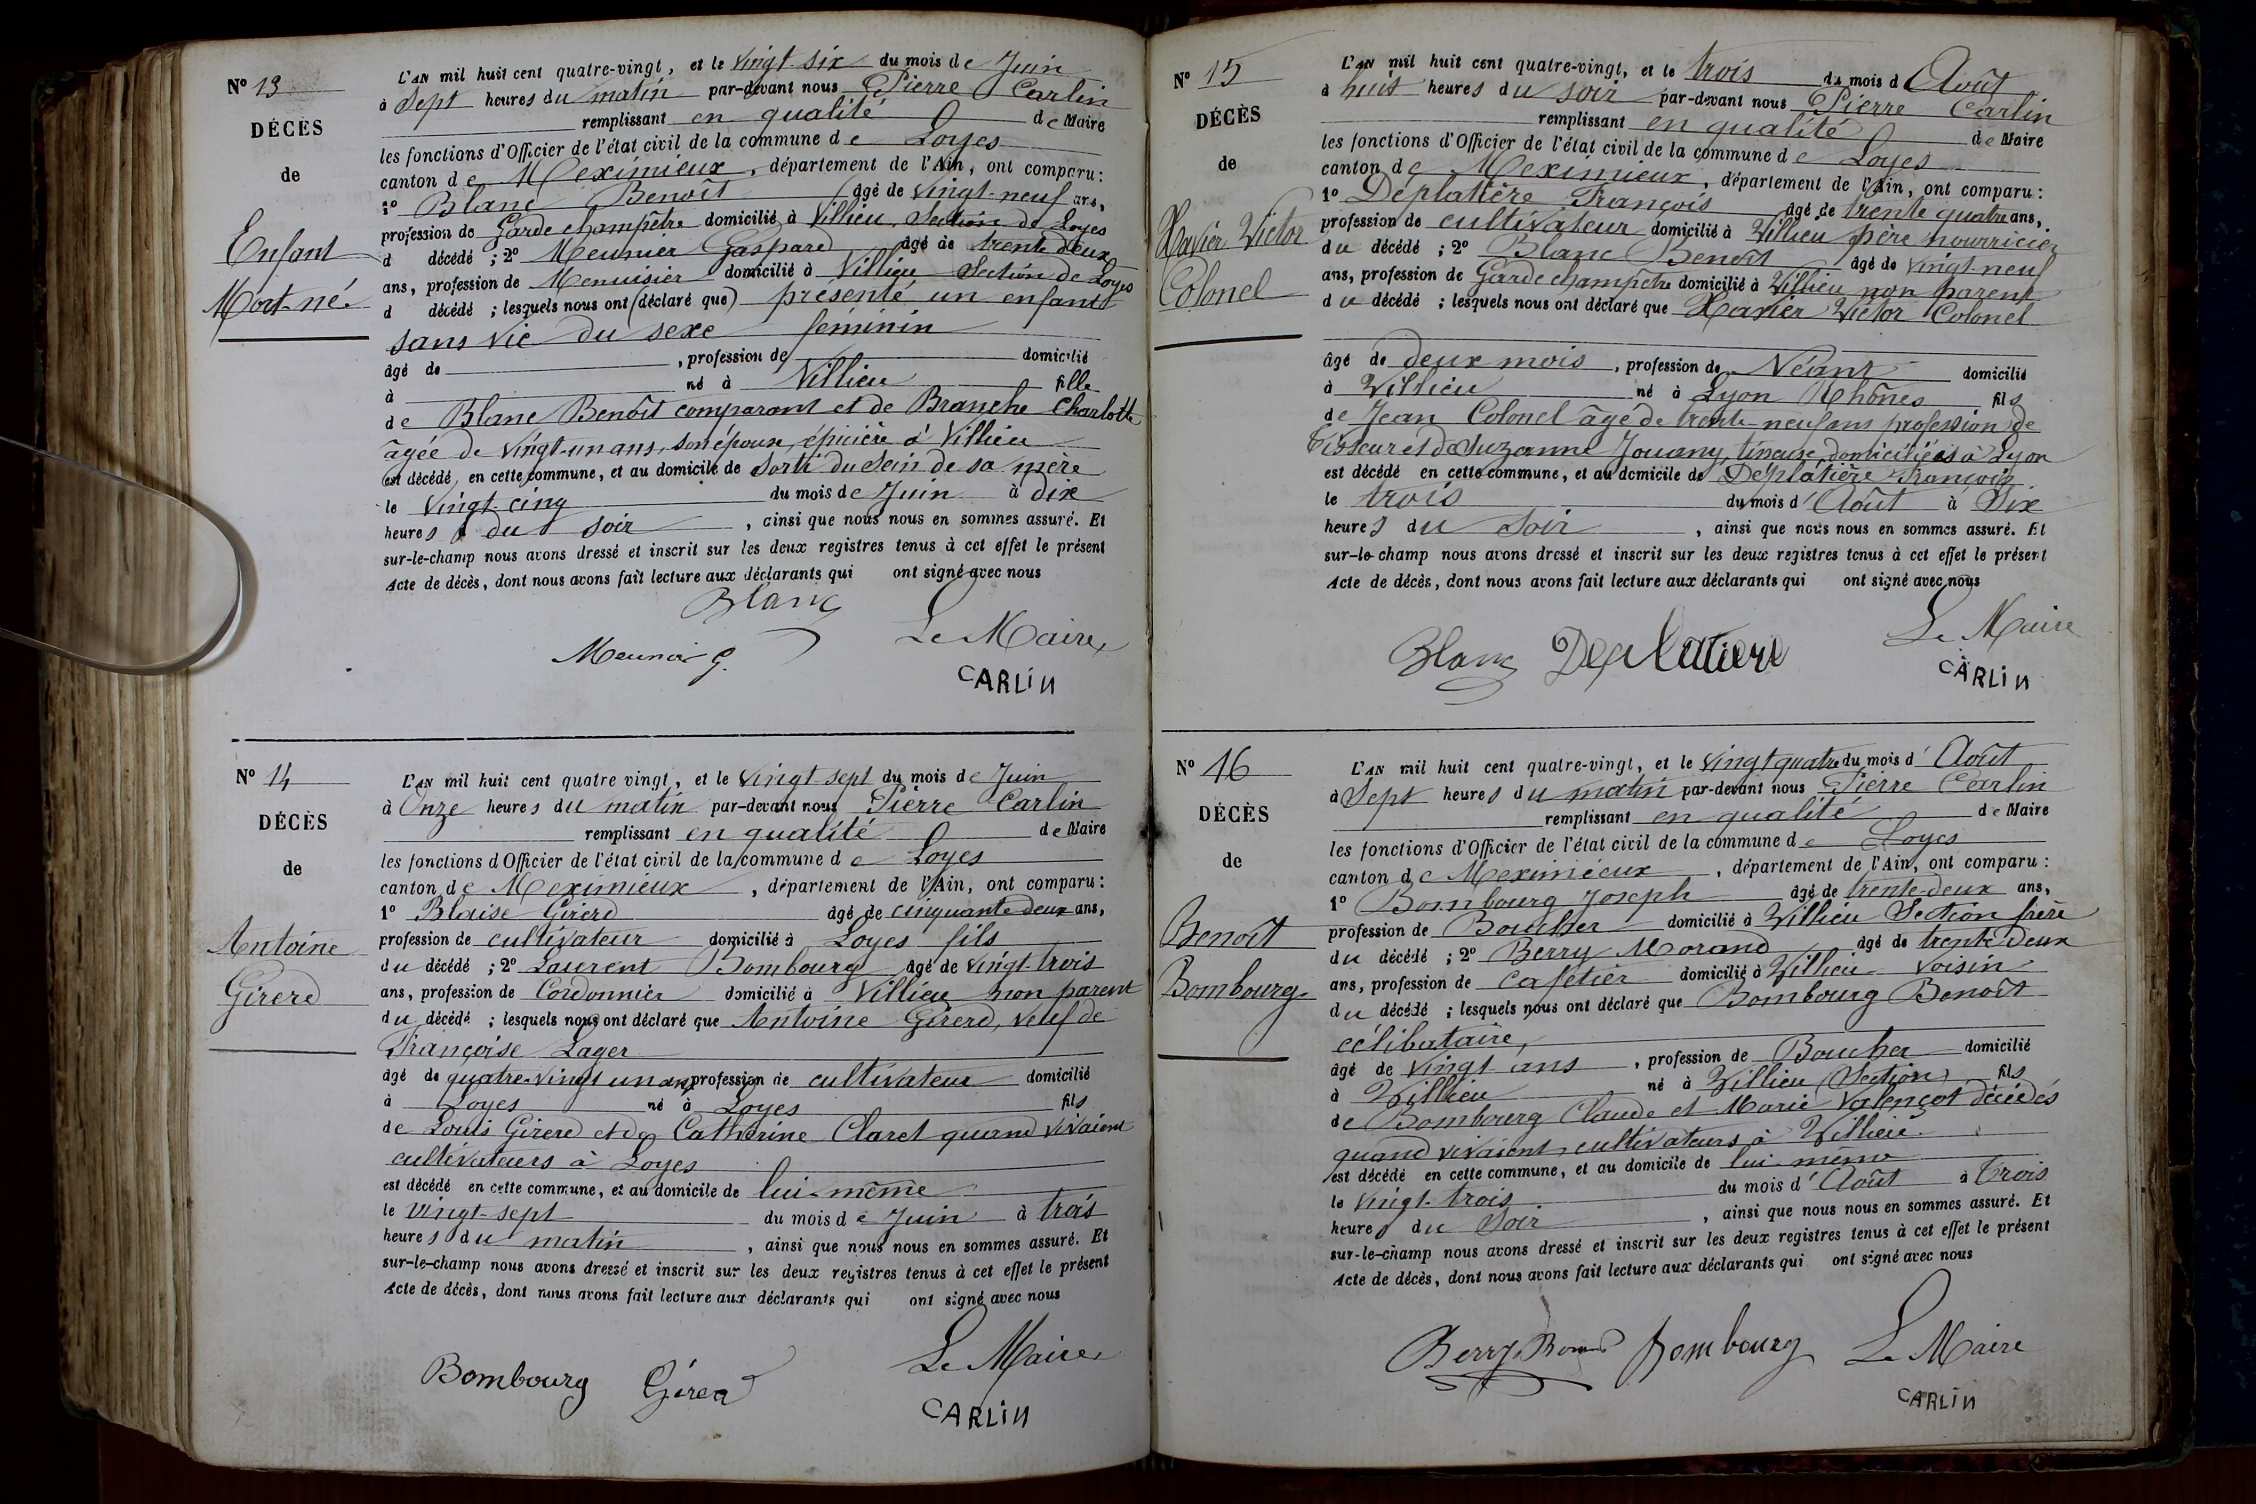 Nº 13
DÉCÈS
de
Enfant
Mort-né.
L'AN mil huit cent quatre-vingt, et le vingt six du mois de Juin
à Sept heures du matin par-devant nous Pierre Carlin
remplissant en qualité de Maire
les fonctions d'Officier de l'état civil de la commune de Loyes
canton de Meximieux, département de l'Ain, ont comparu:
1º Blanc Benoît âgé de vingt-neuf ans,
profession de Garde champêtre domicilié à Villieu, Section de Loyes
d décédé ; 2º Meunier Gaspard âgé de trente deux
ans, profession de Menuisier domicilié à Villieu Section de Loyes
d décédé ; lesquels nous ont (déclaré que) présenté un enfant
sans vie du sexe féminin
âgé de , profession de domicilié
à né à Villieu fille
de Blanc Benoît comparant et de Branche Charlotte
âgée de vingt-un ans, son épouse, épicière à Villieu
est décédé, en cette commune, et au domicile de Sorti du sein de sa mère
le vingt-cinq du mois de Juin à dix
heures du soir, ainsi que nous nous en sommes assuré. Et
sur-le-champ nous avons dressé et inscrit sur les deux registres tenus à cet effet le présent
Acte de décès, dont nous avons fait lecture aux déclarants qui ont signé avec nous
Blanc
Meunier G.
Le Maire
CARLIN
Nº 14
DÉCÈS
de
Antoine
Girerd
L'AN mil huit cent quatre vingt, et le vingt-sept du mois de Juin
à Onze heures du matin par-devant nous Pierre Carlin
remplissant en qualité de Maire
les fonctions d'Officier de l'état civil de la commune de Loyes
canton de Meximieux, département de l'Ain, ont comparu:
1º Blaise Girerd âgé de cinquante deux ans,
profession de cultivateur domicilié à Loyes fils
du décédé ; 2º Laurent Bombourg âgé de vingt-trois
ans, profession de Cordonnier domicilié à Villieu non parent
du décédé ; lesquels nous ont déclaré que Antoine Girerd, veuf de
Françoise Lager
âgé de quatre-vingt un ans profession de cultivateur domicilié
à Loyes né à Loyes fils
de Louis Girerd et de Cathérine Claret quand vivaient
cultivateurs à Loyes
est décédé en cette commune, et au domicile de lui-même
le vingt-sept du mois de Juin à trois
heures du matin, ainsi que nous nous en sommes assuré. Et
sur-le-champ nous avons dressé et inscrit sur les deux registres tenus à cet effet le présent
Acte de décès, dont nous avons fait lecture aux déclarants qui ont signé avec nous
Bombourg Girerd
Le Maire
CARLIN
Nº 15
DÉCÈS
de
Xavier Victor
Colonel
L'AN mil huit cent quatre-vingt, et le trois du mois d Août
à huit heures du soir par-devant nous Pierre Carlin
remplissant en qualité de Maire
les fonctions d'Officier de l'état civil de la commune de Loyes
canton de Meximieux, département de l'Ain, ont comparu:
1º Déplatière François âgé de trente quatre ans,
profession de cultivateur domicilié à Villieu père nourricier
du décédé ; 2º Blanc Benoît âgé de vingt-neuf
ans, profession de Garde champêtre domicilié à Villieu non parent
du décédé ; lesquels nous ont déclaré que Xavier Victor Colonel
âgé de deux mois, profession de Néant domicilié
à Villieu né à Lyon Rhône fils
de Jean Colonel âgé de trente-neuf ans profession de
Tisseur et de Suzanne Jouany, domiciliés à Lyon
est décédé en cette commune, et au domicile de Déplatière François
le trois du mois d'Août à Six
heures du Soir, ainsi que nous nous en sommes assuré. Et
sur-le-champ nous avons dressé et inscrit sur les deux registres tenus à cet effet le présent
Acte de décès, dont nous avons fait lecture aux déclarants qui ont signé avec nous
Blanc Deplatiere
Le Maire
CARLIN
Nº 16
DÉCÈS
de
Benoît
Bombourg
L'AN mil huit cent quatre-vingt, et le vingt quatre du mois d'Août
à Sept heures du matin par-devant nous Pierre Carlin
remplissant en qualité de Maire
les fonctions d'Officier de l'état civil de la commune de Loyes
canton de Meximieux, département de l'Ain, ont comparu:
1º Bombourg Joseph âgé de trente-deux ans,
profession de Boucher domicilié à Villieu Section frère
du décédé ; 2º Berry Morand âgé de trente deux
ans, profession de cafétier domicilié à Villieu voisin
du décédé ; lesquels nous ont déclaré que Bombourg Benoît
célibataire,
âgé de vingt ans, profession de Boucher domicilié
à Villieu né à Villieu (Section) fils
de Bombourg Claude et Marie Valençot décédés
quand vivaient cultivateurs à Villieu.
est décédé en cette commune, et au domicile de lui-même
le vingt-trois du mois d'Août à trois
heures du Soir, ainsi que nous nous en sommes assuré. Et
sur-le-champ nous avons dressé et inscrit sur les deux registres tenus à cet effet le présent
Acte de décès, dont nous avons fait lecture aux déclarants qui ont signé avec nous
Berry Bombourg
Le Maire
CARLIN